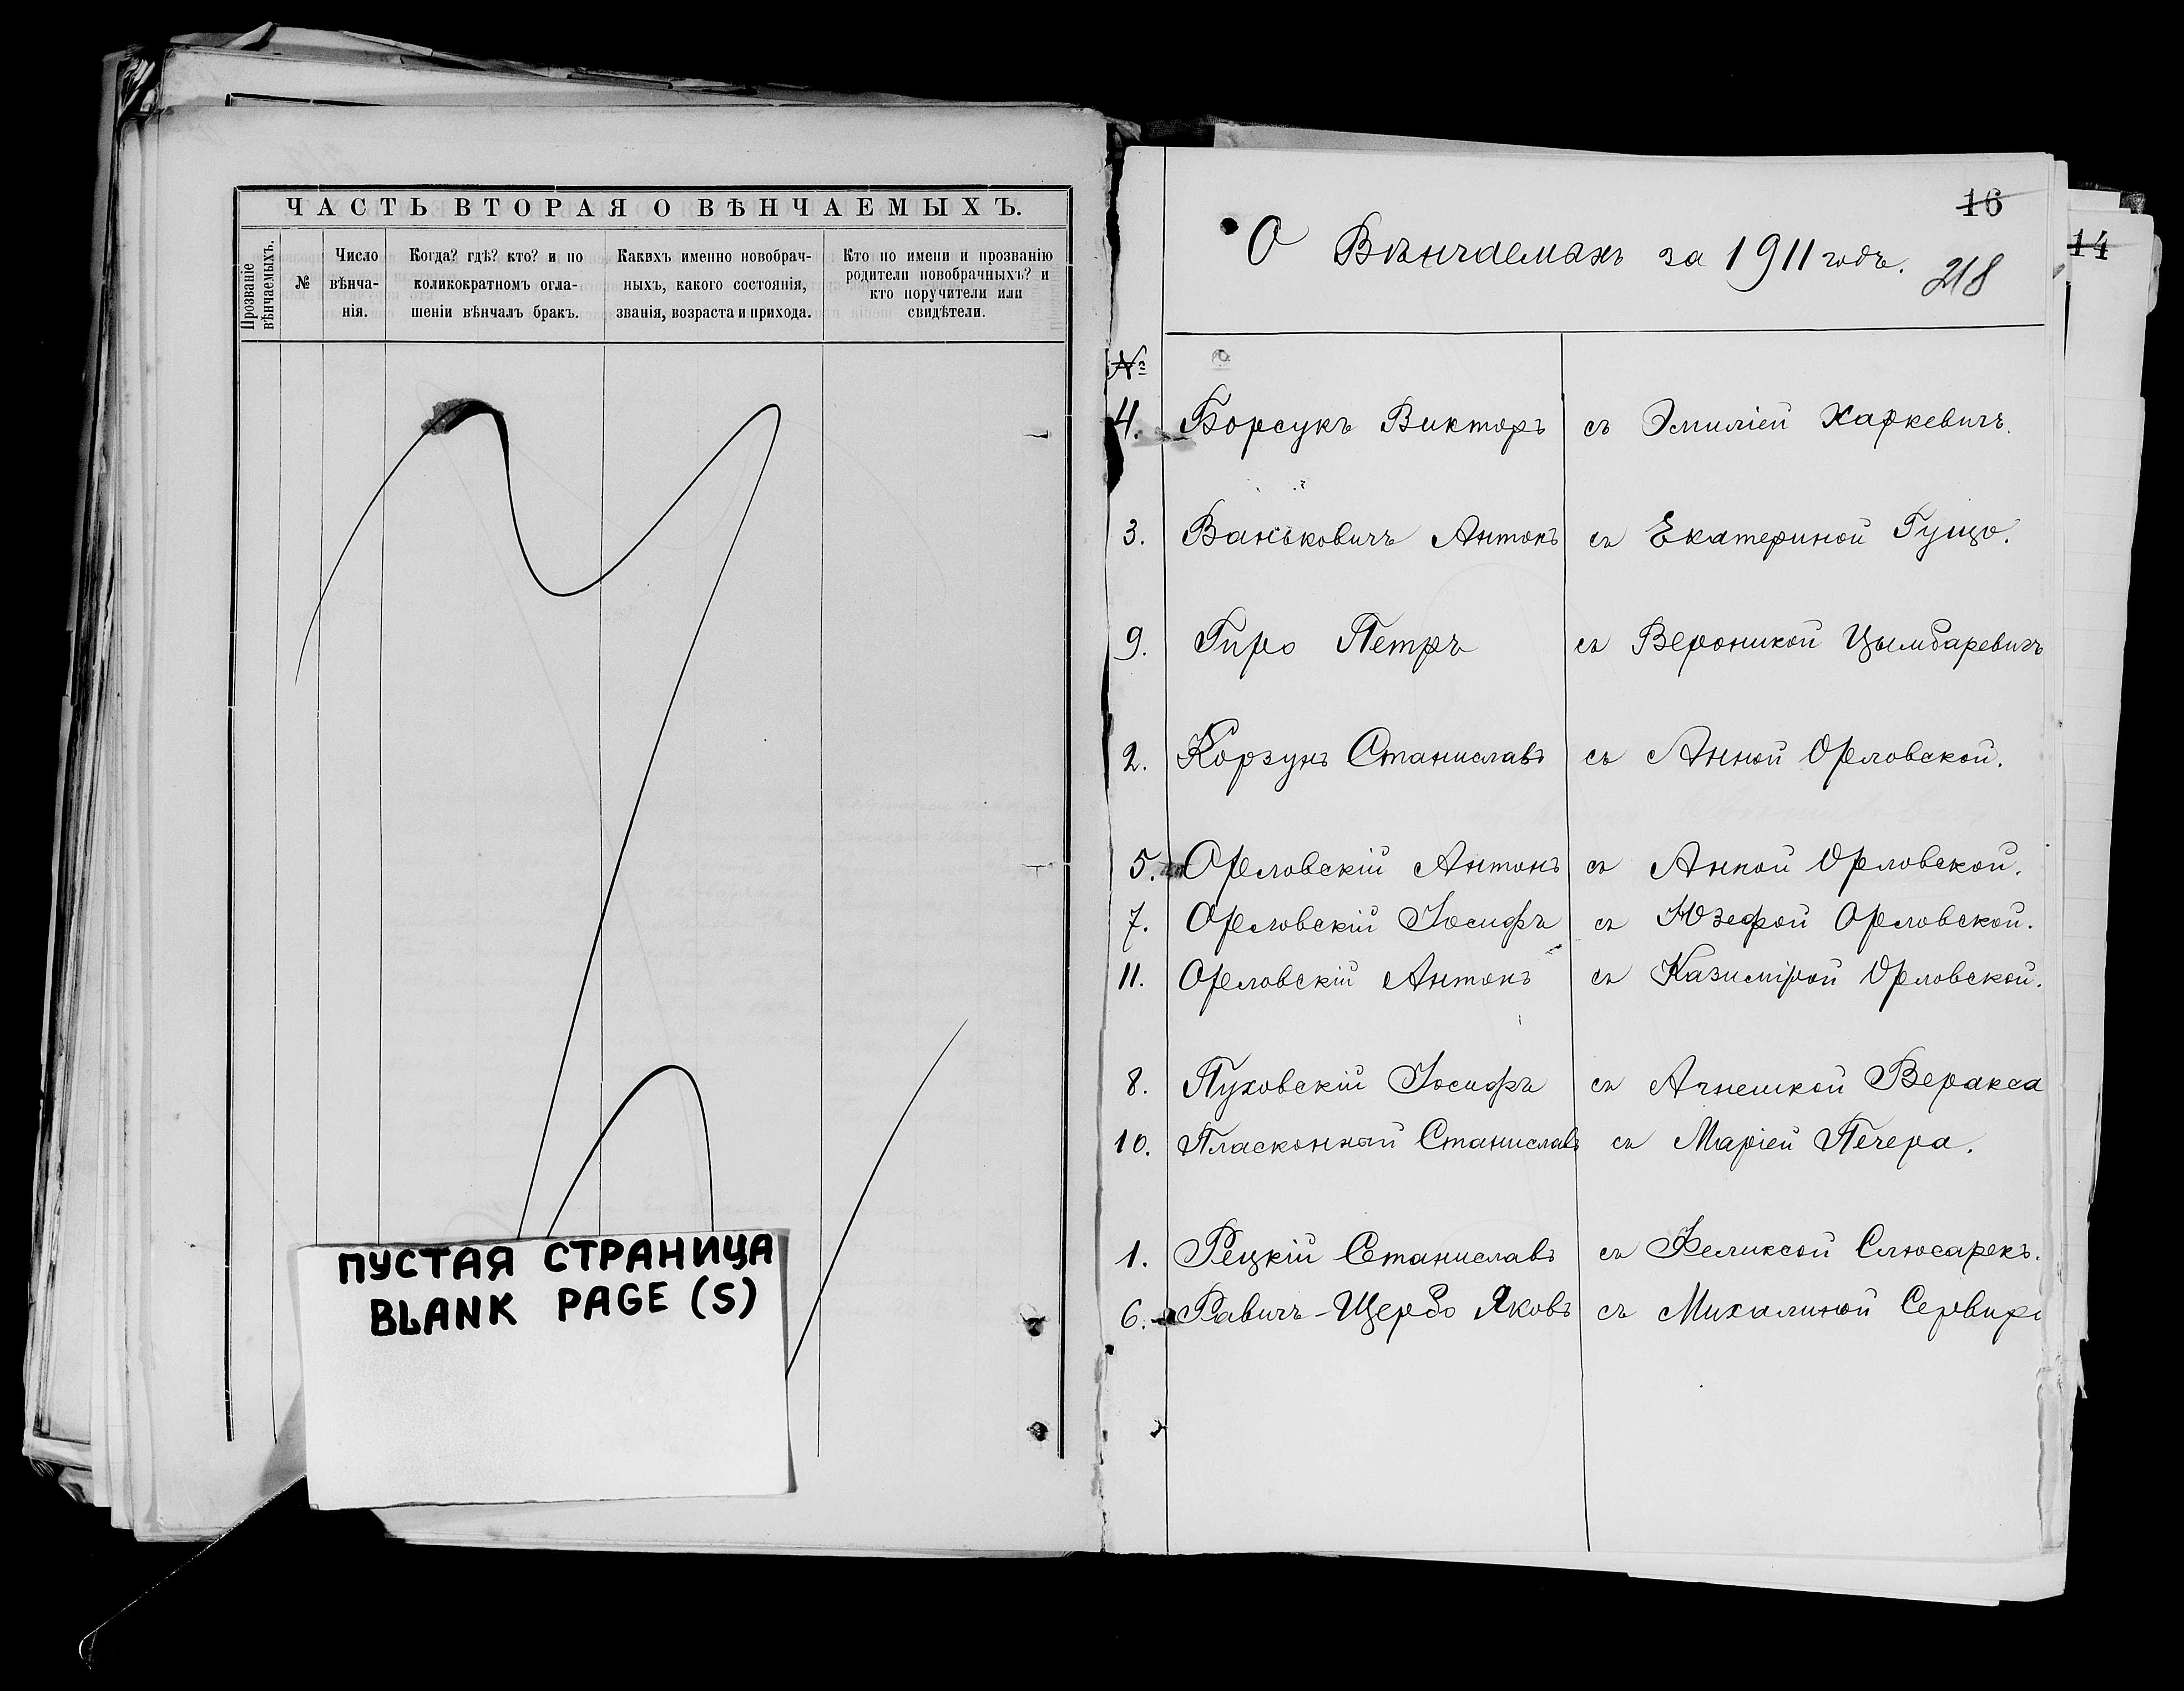 ЧАСТЬ ВТОРАЯ О ВѢНЧАЕМЫХЪ.
Прозваніе
вѣнчаемыхъ.
№
Число
вѣнча-
нія.
Когда? гдѣ? кто? и по
коликократномъ огла-
шеніи вѣнчалъ бракъ.
Какихъ именно новобрач-
ныхъ, какого состоянія,
званія, возраста и прихода.
Кто по имени и прозванію
родители новобрачныхъ? и
кто поручители или
свидѣтели.
ПУСТАЯ СТРАНИЦА
BLANK PAGE (S)
16
14
О Вѣнчаемыхъ за 1911 годъ.
218
№
4. Борсукъ Викторъ съ Эмиліей Харкевичъ.
3. Ваньковичъ Антонъ съ Екатериной Гущо.
9. Гиро Петръ съ Вероникой Цымбаревичъ
2. Корзунъ Станиславъ съ Анной Орловской.
5. Орловскій Антонъ съ Анной Орловской.
7. Орловскій Іосифъ съ Юзефой Орловской.
11. Орловскій Антонъ съ Казимірой Орловской.
8. Пуховскій Іосифъ съ Агнешкой Веракса
10. Пласконный Станиславъ съ Маріей Печера.
1. Рецкій Станиславъ съ Феликсой Слюсарекъ.
6. Равичъ-Щербо Яковъ съ Михалиной